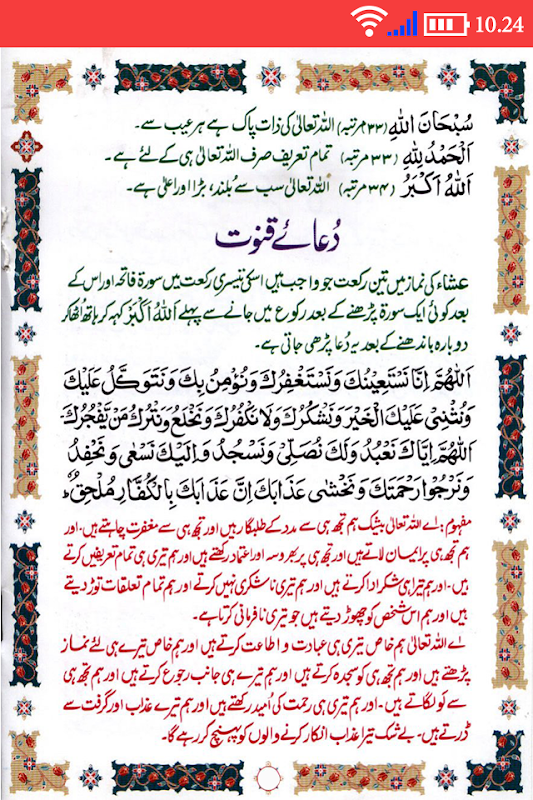 10.24
سُبْحَانَ اللهِ (۳۳ مرتبہ) اللہ تعالیٰ کی ذات پاک ہے ہر عیب سے۔
اَلْحَمْدُ لِلّٰهِ (۳۳ مرتبہ) تمام تعریف صرف اللہ تعالیٰ ہی کے لئے ہے۔
اَللهُ اَكْبَرُ (۳۴ مرتبہ) اللہ تعالیٰ سب سے بُلند، بڑا اور اعلیٰ ہے۔
دُعائے قنوت
عشاء کی نماز میں تین رکعت جو واجب ہیں اسکی تیسری رکعت میں سورۃ فاتحہ اور اس کے
بعد کوئی ایک سورۃ پڑھنے کے بعد رکوع میں جانے سے پہلے اَللهُ اَكْبَرُ کہہ کر ہاتھ اُٹھا کر
دوبارہ باندھنے کے بعد یہ دُعا پڑھی جاتی ہے۔
اَللّٰهُمَّ اِنَّا نَسْتَعِيْنُكَ وَنَسْتَغْفِرُكَ وَنُؤْمِنُ بِكَ وَنَتَوَكَّلُ عَلَيْكَ
وَنُثْنِيْ عَلَيْكَ الْخَيْرَ وَنَشْكُرُكَ وَلَا نَكْفُرُكَ وَنَخْلَعُ وَنَتْرُكُ مَنْ يَّفْجُرُكَ
اَللّٰهُمَّ اِيَّاكَ نَعْبُدُ وَلَكَ نُصَلِّيْ وَنَسْجُدُ وَاِلَيْكَ نَسْعٰى وَنَحْفِدُ
وَنَرْجُوْا رَحْمَتَكَ وَنَخْشٰى عَذَابَكَ اِنَّ عَذَابَكَ بِالْكُفَّارِ مُلْحِقٌ ؕ
مفہوم: اے اللہ تعالیٰ بیشک ہم تجھ ہی سے مدد کے طلبگار ہیں اور تجھ ہی سے مغفرت چاہتے ہیں۔ اور
ہم تجھ ہی پر ایمان لاتے ہیں اور تجھ ہی پر بھروسہ اور اعتماد رکھتے ہیں اور ہم تیری ہی تمام تعریفیں کرتے
ہیں۔ اور ہم تیرا ہی شکر ادا کرتے ہیں اور ہم تیری ناشکری نہیں کرتے اور ہم تمام تعلقات توڑ دیتے
ہیں اور ہم اس شخص کو چھوڑ دیتے ہیں جو تیری نافرمانی کرتا ہے۔
اے اللہ تعالیٰ ہم خاص تیری ہی عبادت و اطاعت کرتے ہیں اور ہم خاص تیرے ہی لئے نماز
پڑھتے ہیں اور ہم تجھ ہی کو سجدہ کرتے ہیں اور ہم تیرے ہی جانب رجوع کرتے ہیں اور ہم تجھ ہی
سے لو لگاتے ہیں۔ اور ہم تیری ہی رحمت کی اُمید رکھتے ہیں اور ہم تیرے عذاب اور گرفت سے
ڈرتے ہیں۔ بے شک تیرا عذاب انکار کرنے والوں کو پہنچ کر رہے گا۔